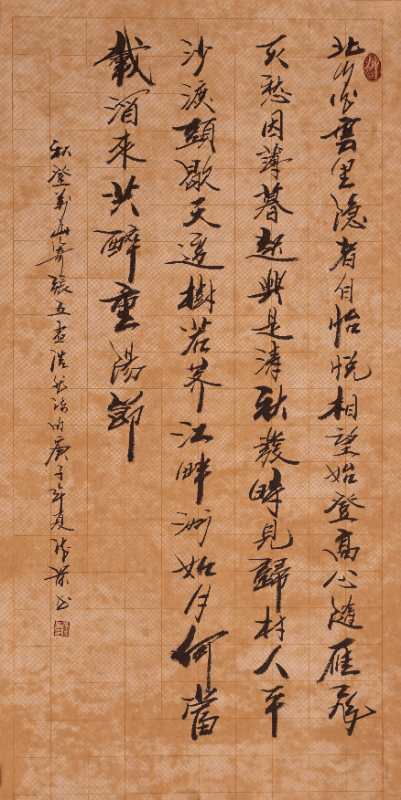 北山白雲里隐者自怡悅相望始登高心隨雁飛
灭愁因薄暮起興是清秋發時見歸村人平
沙渡頭歇天邊樹若荠江畔洲如月何當
載酒來共醉重陽節
秋登山寄張五孟浩然诗庚子年夏书